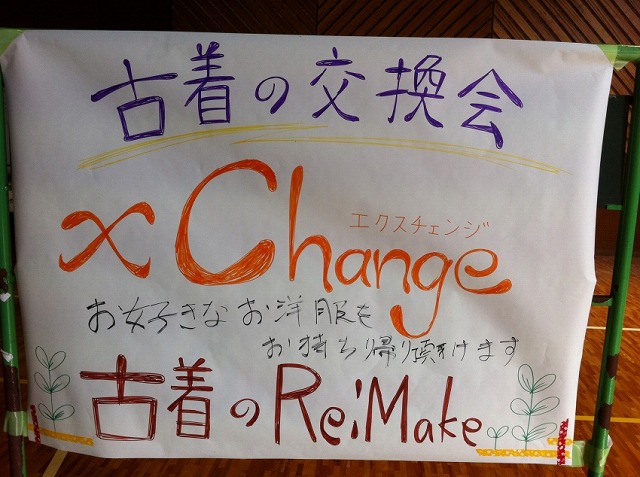 古着の交換会
エクスチェンジ
xChange
お好きなお洋服も
お持ち帰り頂けます
古着のRe;Make